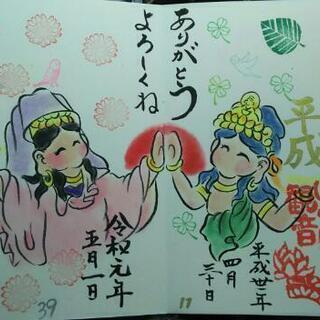 ありがとう
よろしくね
平成
観音
平成卅一年
四月
三十日
令和元年
五月一日
39
11